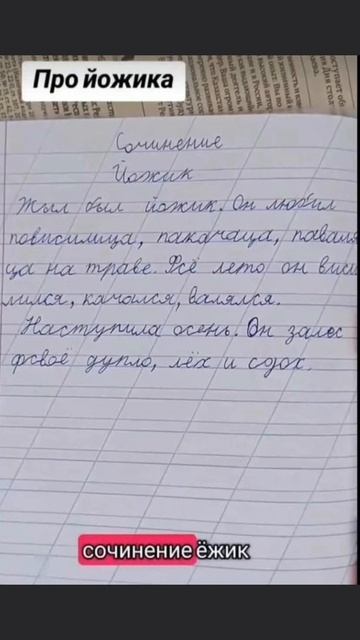 Про йожика
Сочинение
Йожик
Жыл был йожик. Он любил
повисилица, пакачаца, паваля
ца на траве. Фсё лето он виси
лился, качался, валялся.
Наступила осень. Он залес
фсваё дупло, лёх и сдох.
сочинение ёжик